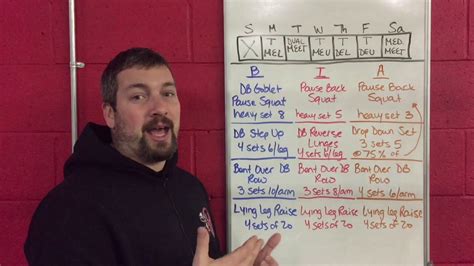 S M T W Th F Sa
X T MEL DUAL MEET T MEU T DEL T DEU MED. MEET
B I A
DB Goblet Pause Back Pause Back
Pause Squat Squat Squat
heavy set 8 heavy set 5 heavy set 3
DB Step Up DB Reverse Drop Down Set
4 sets 6/leg Lunges 3 sets 5
4 sets 6/leg @75% of
Bent Over DB Bent Over DB Bent Over DB
Row Row Row
3 sets 10/arm 3 sets 8/arm 4 sets 6/arm
Lying Leg Raise Lying Leg Raise Lying Leg Raise
4 sets of 20 4 sets of 20 4 sets of 20